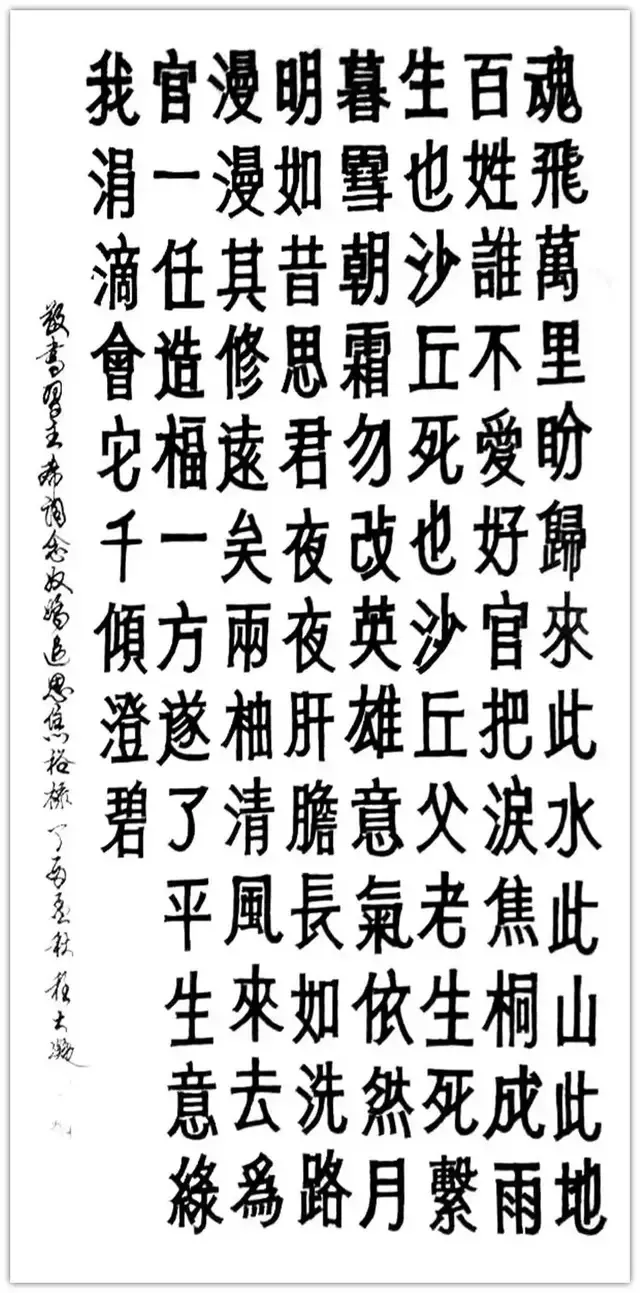 魂飛萬里盼歸來此水此山此地
百姓誰不愛好官把淚焦桐成雨
生也沙丘死也沙丘父老生死繫
暮雪朝霜勿改英雄意氣依然月
明如昔思君夜夜肝膽長如洗路
漫漫其修遠矣兩柚清風來去爲
官一任造福一方遂了平生意綠
我涓滴會它千傾澄碧
敬書習主席詞念奴嬌追思焦裕祿丁酉孟秋